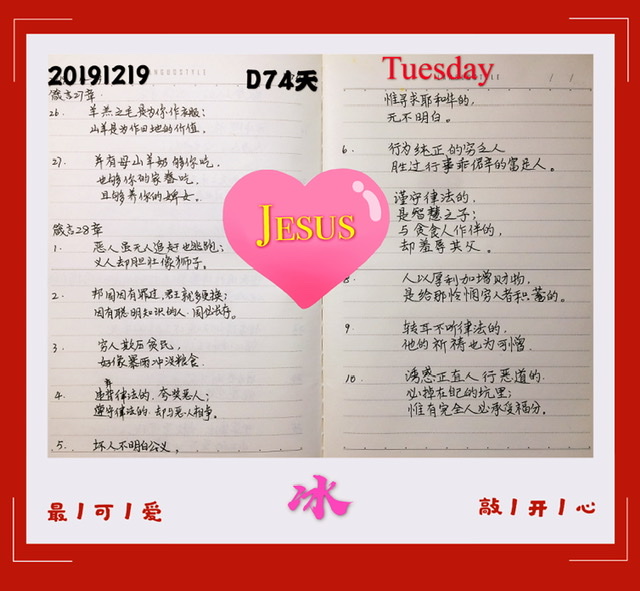 20191219
D74天
箴言27章
26. 羊羔之毛是为你作衣服；
山羊是为作田地的价值，
27. 并有母山羊奶够你吃，
也够你的家眷吃，
且够养你的婢女。
箴言28章
1. 恶人虽无人追赶也逃跑；
义人却胆壮像狮子。
2. 邦国因有罪过，君王就多更换；
因有聪明知识的人，国必长存。
3. 穷人欺压贫民，
好像暴雨冲没粮食。
弃
4. 违律法的，夸奖恶人；
遵守律法的，却与恶人相争。
5. 坏人不明白公义，
Tuesday
惟寻求耶和华的，
无不明白。
6. 行为纯正的穷乏人
胜过行事乖僻的富足人。
谨守律法的，
是智慧之子；
与贪食人作伴的，
却羞辱其父。
8. 人以厚利加增财物，
是给那怜悯穷人者积蓄的。
9. 转耳不听律法的，
他的祈祷也为可憎。
10. 诱惑正直人行恶道的，
必掉在自己的坑里；
惟有完全人必承受福分。
JESUS
最 / 可 / 爱
冰
敲 / 开 / 心